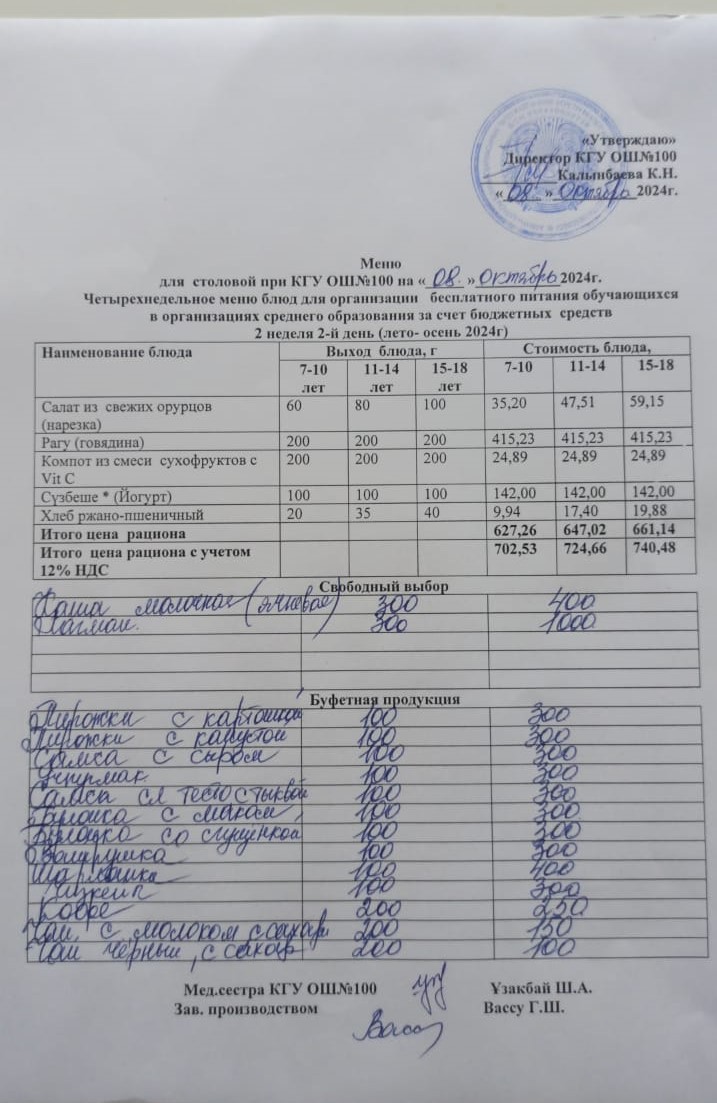 «Утверждаю»
Директор КГУ ОШ№100
Калынбаева К.Н.
« 08 » Октябрь 2024г.
Меню
для столовой при КГУ ОШ№100 на « 08. » Октябрь 2024г.
Четырехнедельное меню блюд для организации бесплатного питания обучающихся
в организациях среднего образования за счет бюджетных средств
2 неделя 2-й день (лето- осень 2024г)
Наименование блюда Выход блюда, г Стоимость блюда,
7-10 лет 11-14 лет 15-18 лет 7-10 11-14 15-18
Салат из свежих орурцов (нарезка) 60 80 100 35,20 47,51 59,15
Рагу (говядина) 200 200 200 415,23 415,23 415,23
Компот из смеси сухофруктов с Vit C 200 200 200 24,89 24,89 24,89
Сүзбеше * (Йогурт) 100 100 100 142,00 142,00 142,00
Хлеб ржано-пшеничный 20 35 40 9,94 17,40 19,88
Итого цена рациона 627,26 647,02 661,14
Итого цена рациона с учетом 12% НДС 702,53 724,66 740,48
Свободный выбор
Каша молочная (ячневая) 300 400
Лагман. 300 1000
Буфетная продукция
Пирожки с картошкой 100 300
Пирожки с капустой 100 300
Самса с сыром 100 300
100 300
Самса сл тесто с тыквой 100 300
Булочка с маком 100 300
Булочка со сгущенкой 100 300
Ватрушка 100 300
100 400
Чизкейк 100 300
Кофе 200 250
Чай с молоком с сахар 200 150
Чай черный, с сахар 200 100
Мед.сестра КГУ ОШ№100 Ұзакбай Ш.А.
Зав. производством Вассу Г.Ш.